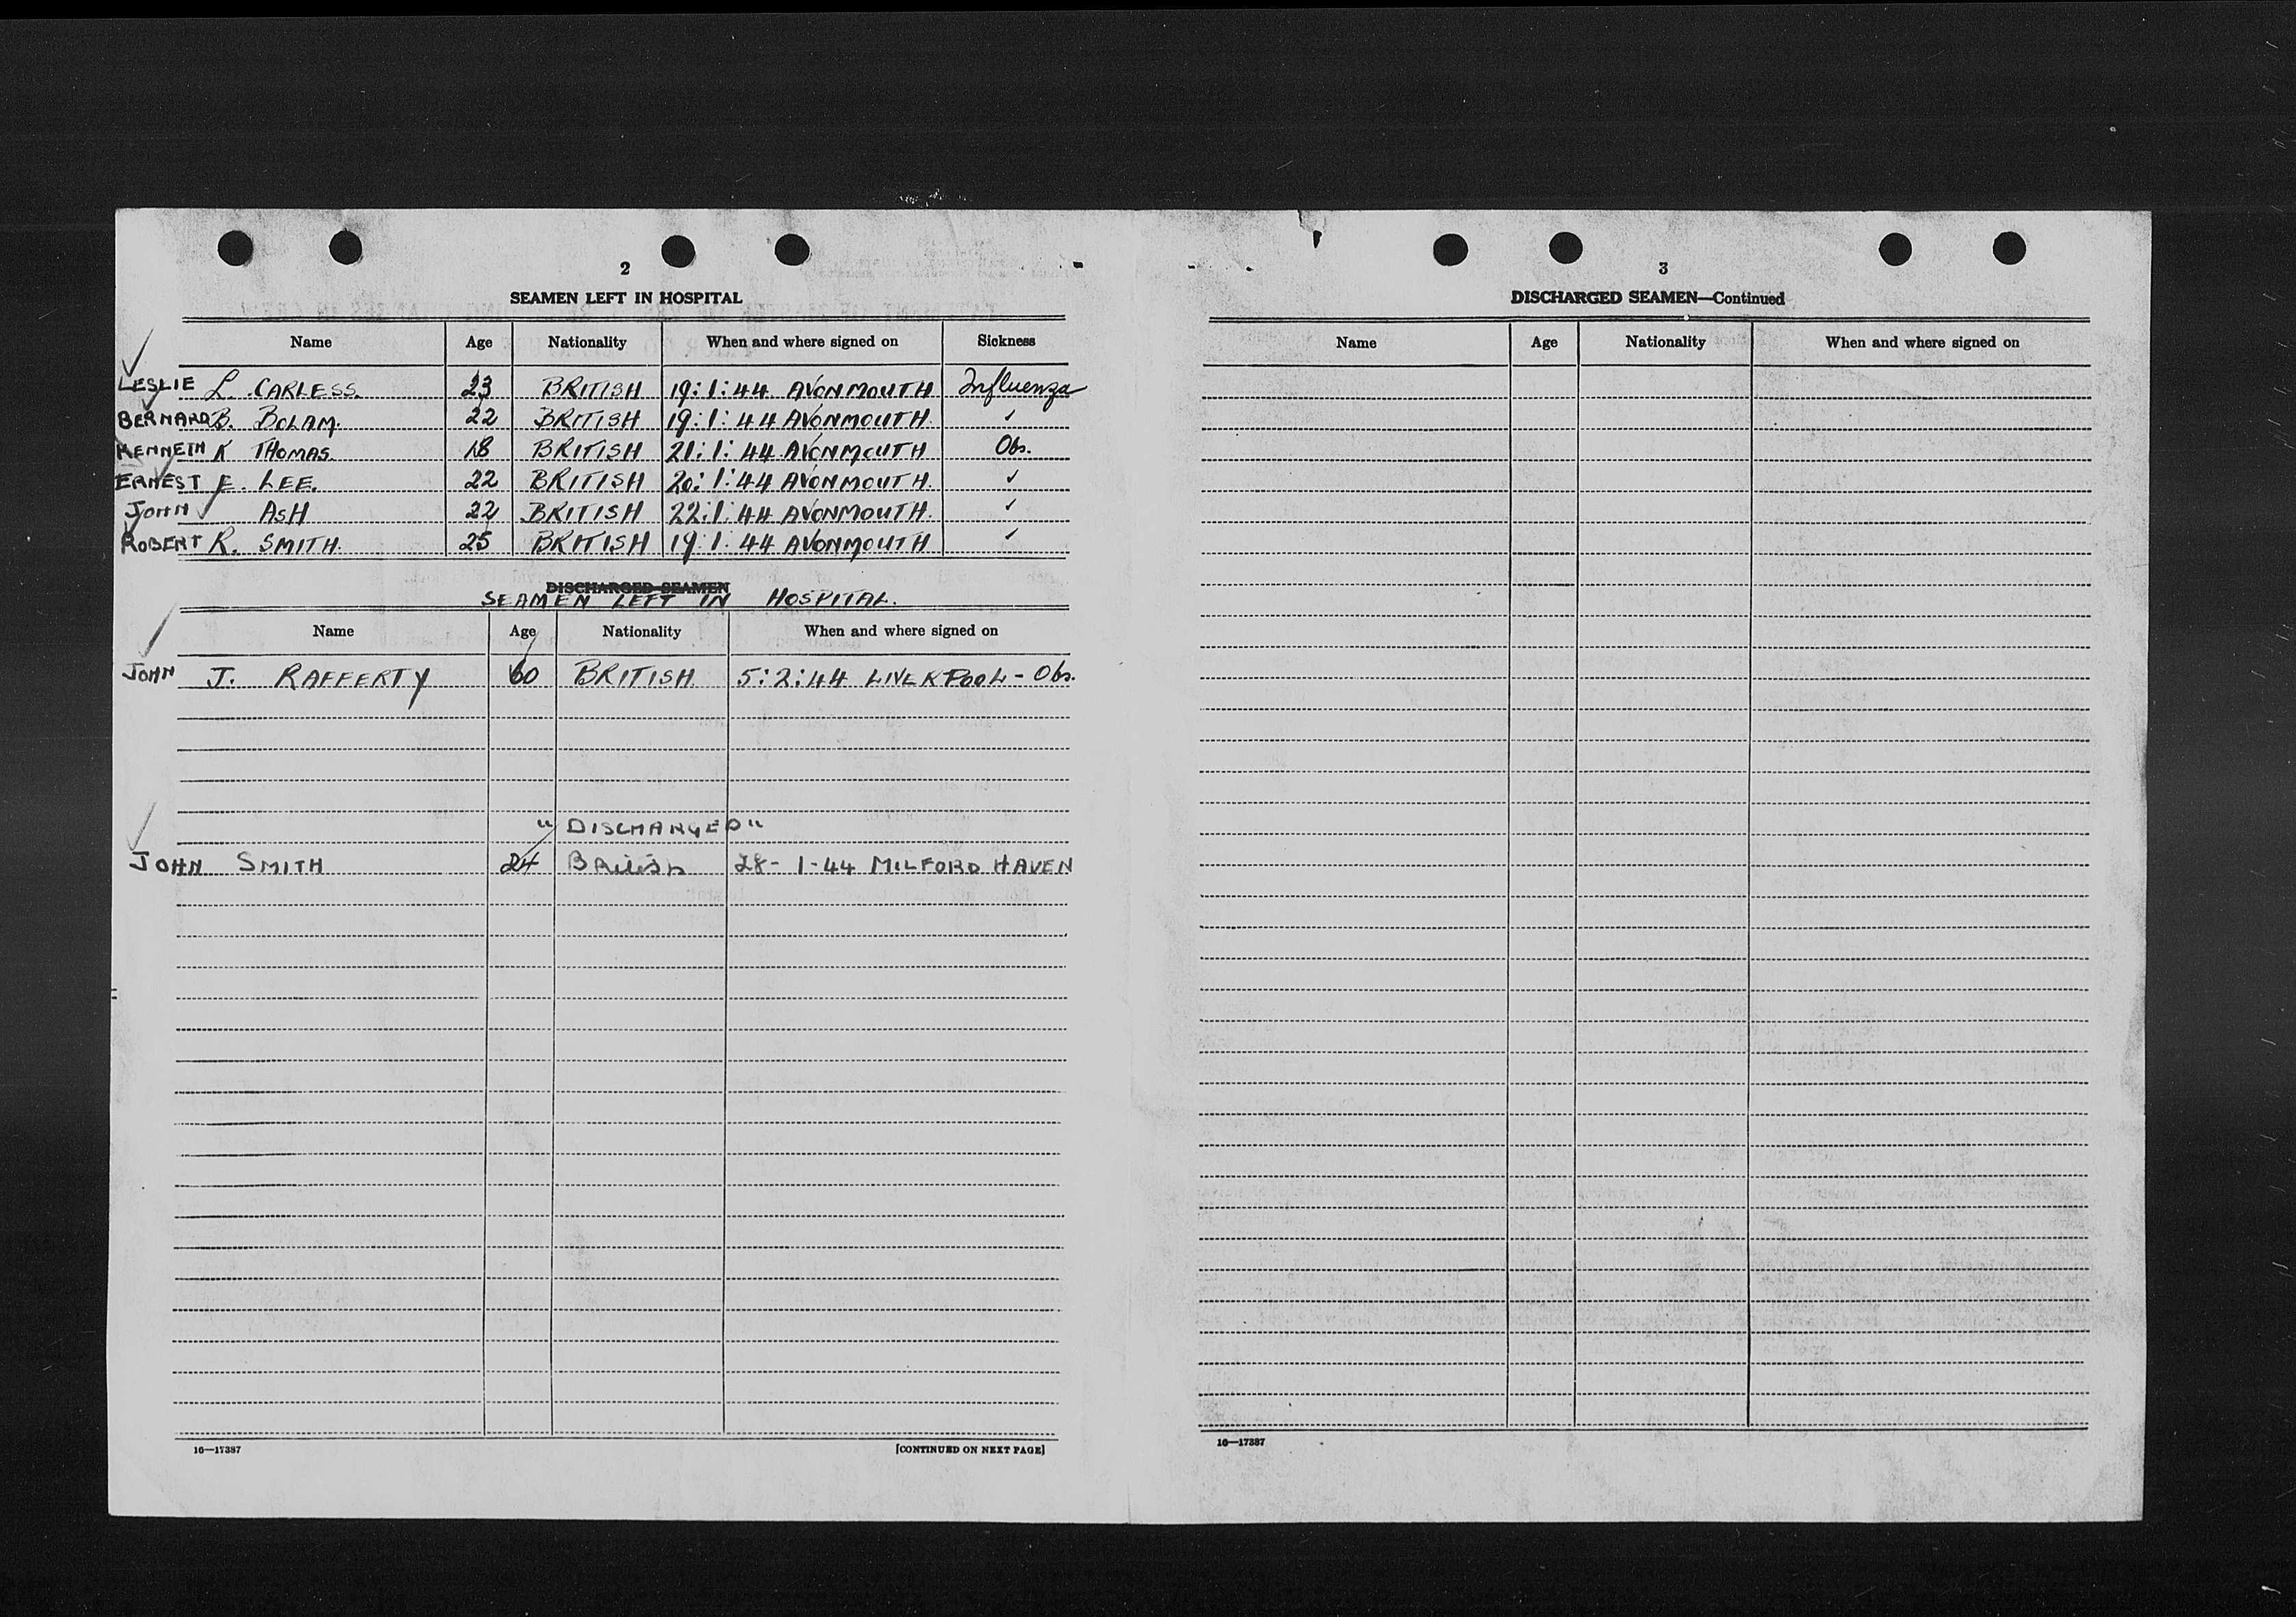 2
SEAMEN LEFT IN HOSPITAL
Name Age Nationality When and where signed on Sickness
LESLIE L. CARLESS. 23 BRITISH 19:1:44 AVONMOUTH Influenza
BERNARD B. BOLAM. 22 BRITISH 19:1:44 AVONMOUTH. ✓
KENNETH K THOMAS. 18 BRITISH 21:1:44 AVONMOUTH Obs.
ERNEST E. LEE. 22 BRITISH 20:1:44 AVONMOUTH. ✓
JOHN ASH 22 BRITISH 22:1:44 AVONMOUTH. ✓
ROBERT R. SMITH. 25 BRITISH 19:1:44 AVONMOUTH ✓
DISCHARGED SEAMEN
SEAMEN LEFT IN HOSPITAL.
Name Age Nationality When and where signed on
JOHN J. RAFFERTY 60 BRITISH 5:2:44 LIVERPOOL - Obs.
"DISCHARGED"
JOHN SMITH 24 British 28-1-44 MILFORD HAVEN
16—17387 [CONTINUED ON NEXT PAGE]
3
DISCHARGED SEAMEN—Continued
Name Age Nationality When and where signed on
16—17387